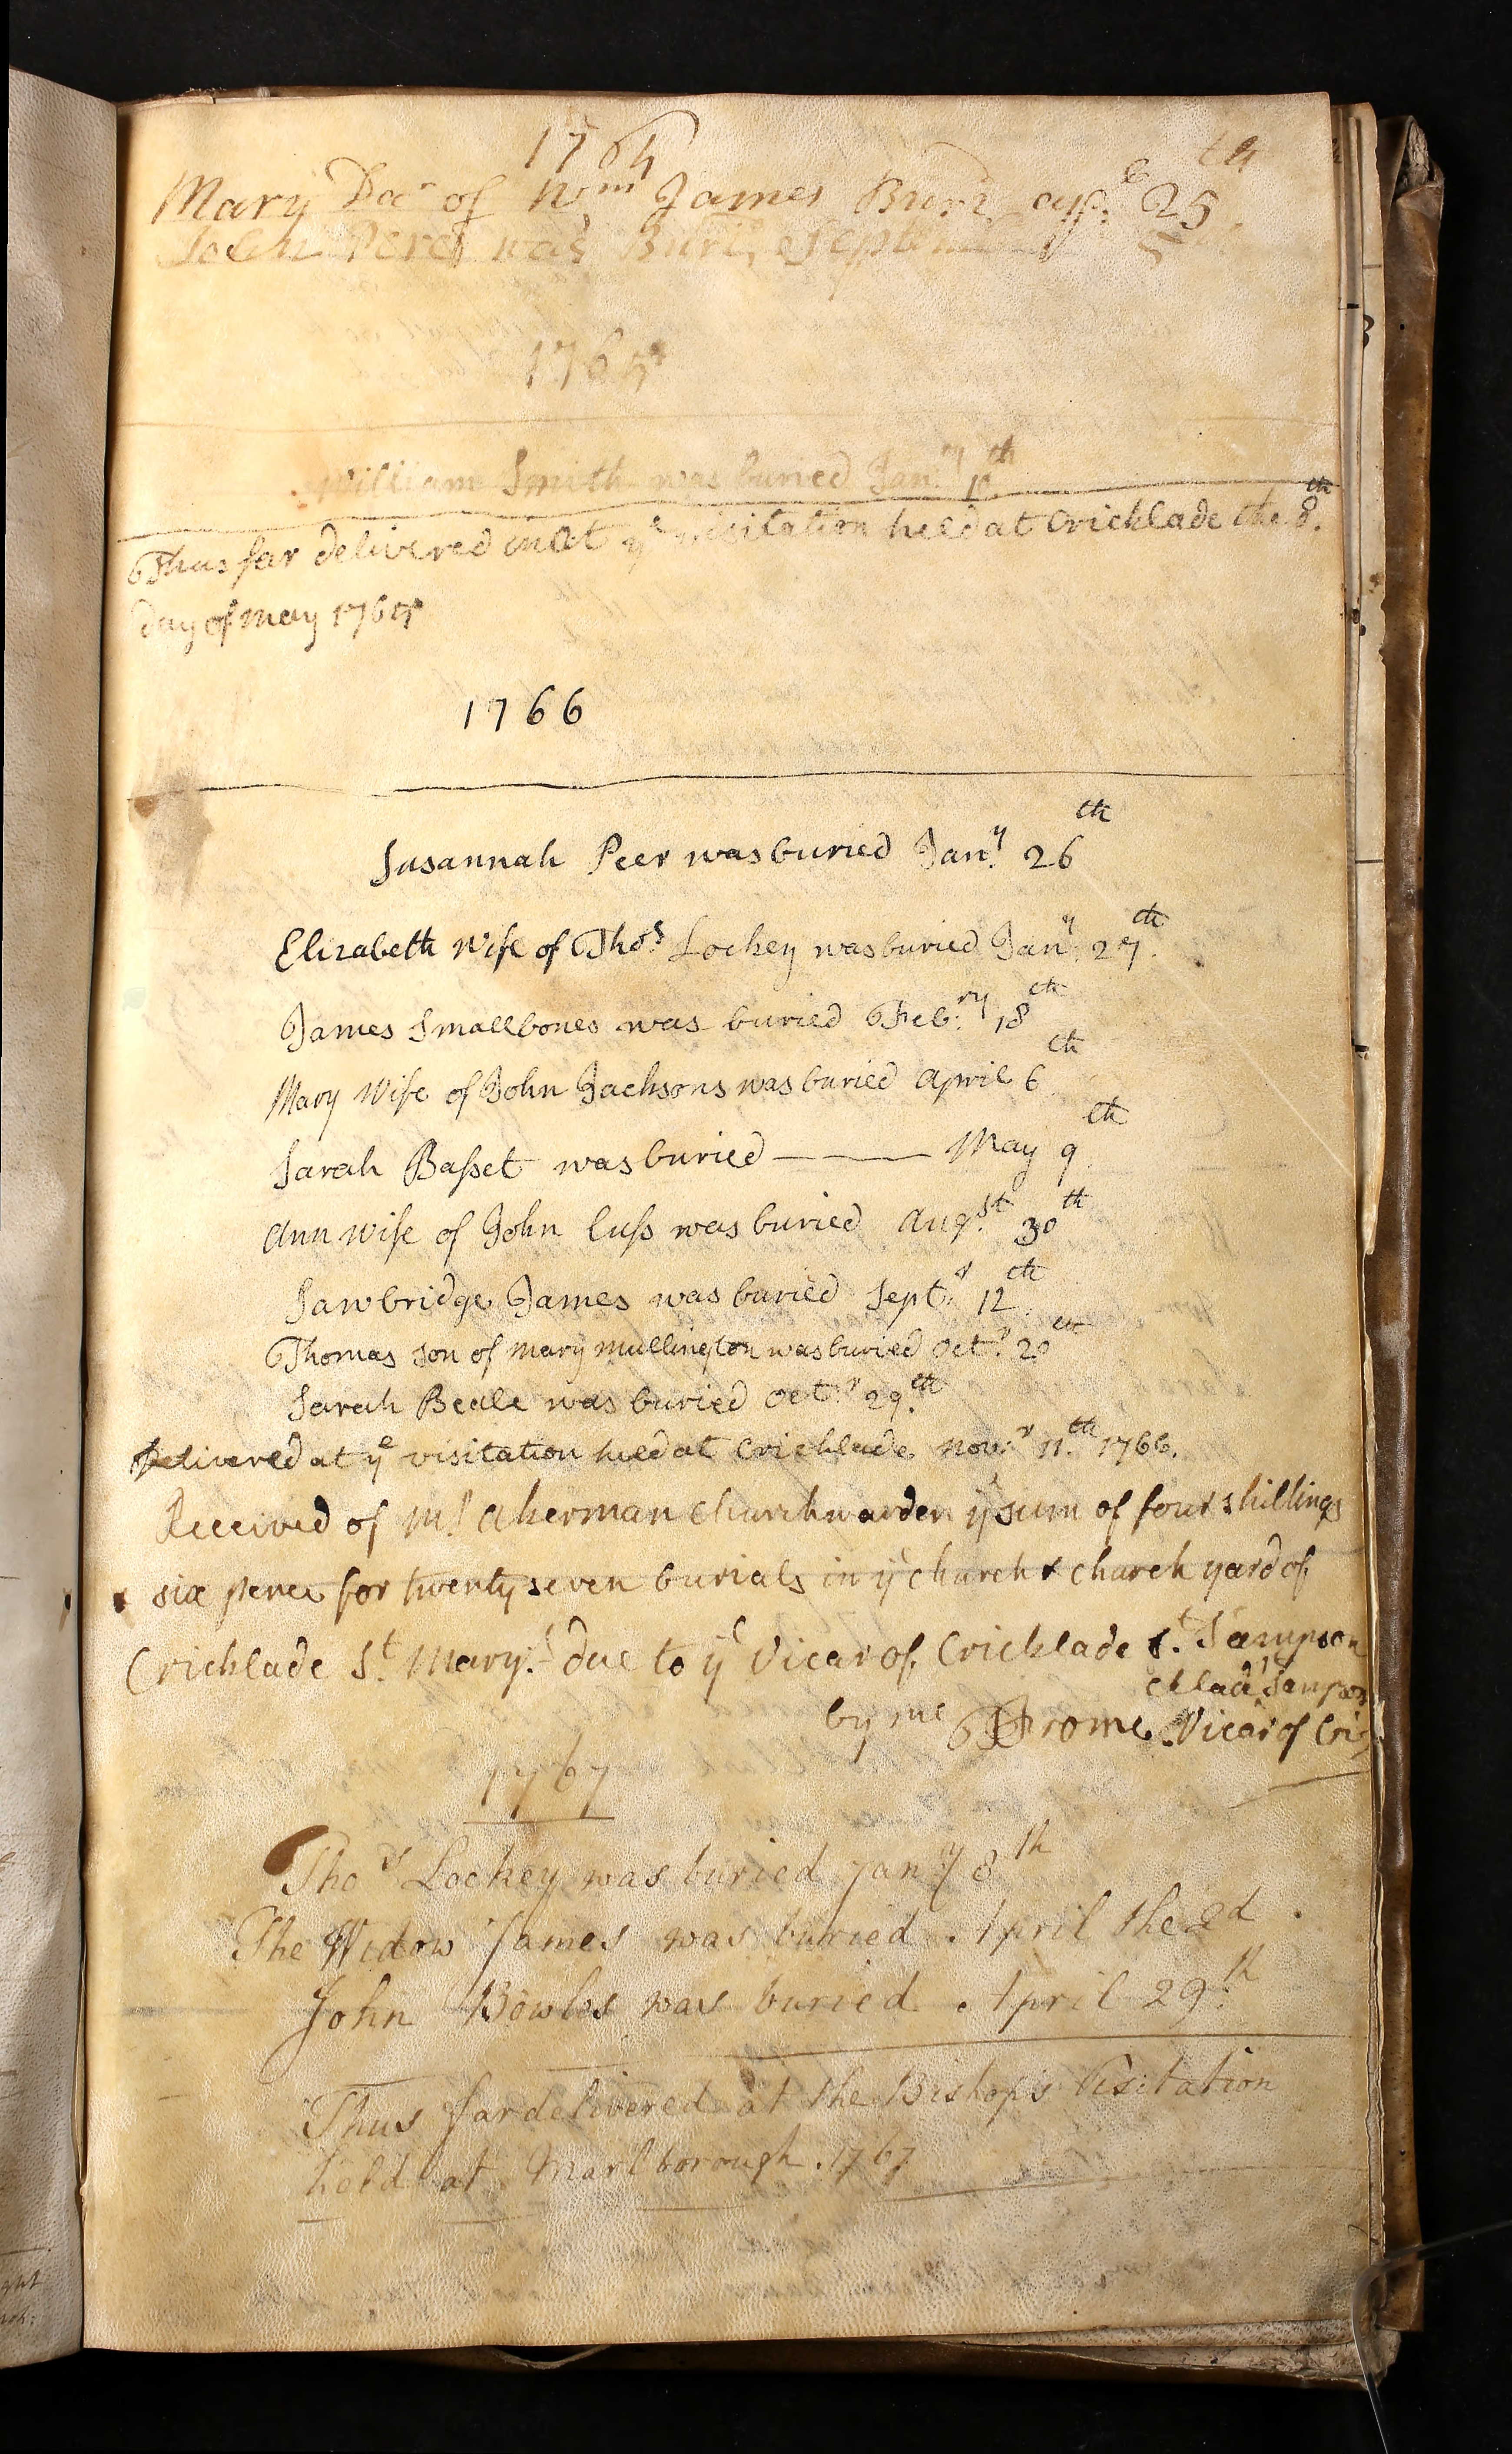 1764
Mary Dar of Wm James Burd 25th
was Buri Septem 5
1765
William Smith was buried Jan:ry 10th
Thus far delivered in at ye visitation held at Cricklade the 8.th
day of may 1765
1766
Susannah Peer was buried Jan:y 26th
Elizabeth Wife of Tho:s Lockey was buried Jan:y 27th.
James Smallbones was buried Feb:ry 18th
Mary Wife of John Jacksons was buried april 6th
Sarah Baſset was buried ——— May 9th
Ann wife of John Cuſs was buried Aug:st 30th
Sawbridge James was buried Sept:r 12th
Thomas son of mary mullington was buried Oct:r 20th
Sarah Beale was buried Oct:r 29.th
Delivered at ye visitation held at Cricklade Nov:r 11.th 1766.
Received of Mr Akerman Churchwarden ye sum of four shillings
& six pence for twenty seven burials in ye church & church yard of
Cricklade St. Mary.s due to ye Vicar of Cricklade St. Sampson
cklade Sampson
by me Frome Vicar of Cri
1767
Thos Lockey was buried Jany 8th
The Widow James was buried April the 2d.
John Bowles was buried April 29th
Thus far delivered at the Bishop's Visitation
held at Marlborough. 1767